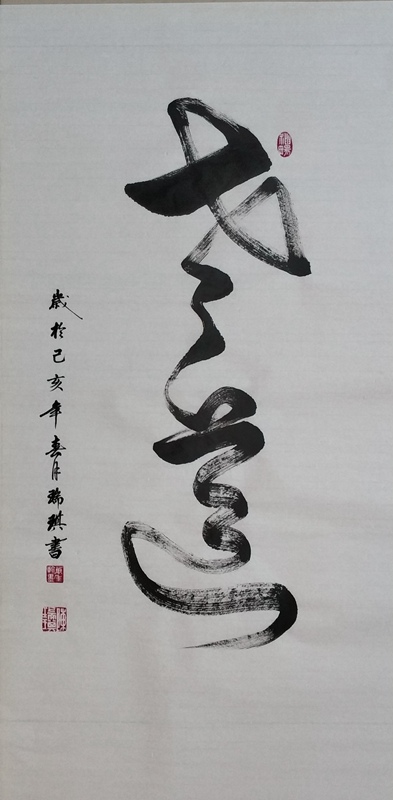 之道
歲於己亥年春月瑞琪書